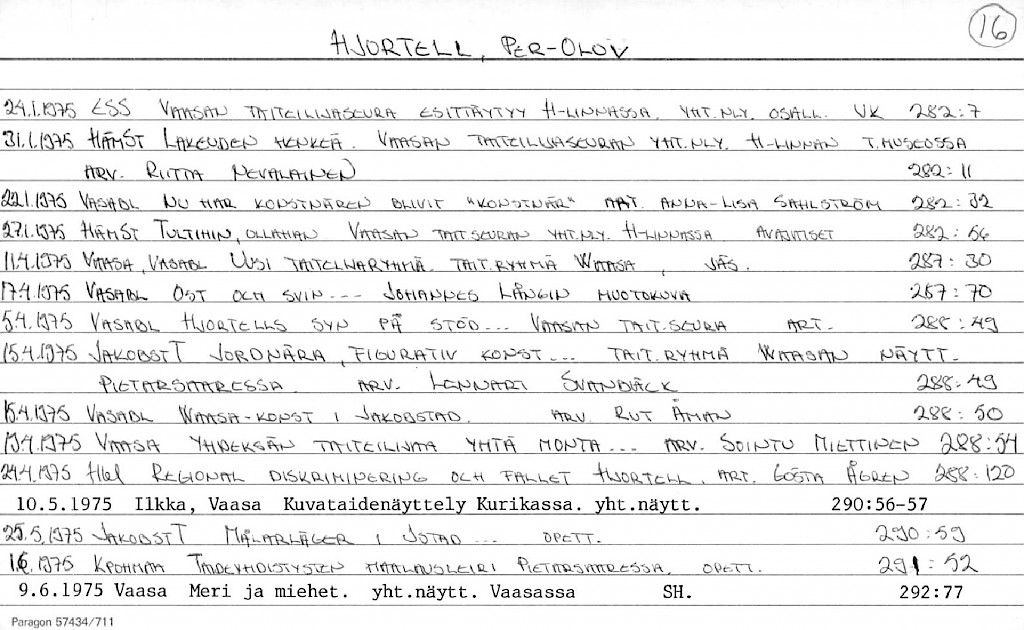 16
HJORTELL, PER-OLOV
24.1.1975 ESS VAASAN TAITEILIJASEURA ESITTÄYTYY H-LINNASSA. YHT.NLY. OSALL. VK 282:7
31.1.1975 HÄMST LAKEUDEN HENKEÄ. VAASAN TAITEILIJASEURAN YHT.NLY. H-LINNAN T.MUSEOSSA
ARV. RIITTA NEVALAINEN 282:11
22.1.1975 VASABL NU HAR KONSTNÄREN BLIVIT "KONSTNÄR" ART. ANNA-LISA SAHLSTRÖM 282:32
27.1.1975 HÄMST TULTIHIN, OLLAHAN VAASAN TAIT.SEURAN YHT.NLY. H-LINNASSA AVAJAISET 282:56
11.4.1975 VAASA, VASABL UUSI TAITEILIJARYHMÄ. TAIT.RYHMÄ WAASA, JÄS. 287:30
17.4.1975 VASABL OST OCH SVIN... JOHANNES LÅNGIN MUOTOKUVA 287:70
5.4.1975 VASABL HJORTELLS SYN PÅ STÖD... VAASAN TAIT.SEURA ART. 288:49
15.4.1975 JAKOBST T JORDNÄRA, FIGURATIV KONST... TAIT.RYHMÄ WAASAN NÄYTT.
PIETARSAARESSA. ARV. LENNART SVANBÄCK 288:49
15.4.1975 VASABL WAASA-KONST I JAKOBSTAD. ARV. RUT ÅMAN 288:50
19.4.1975 VAASA YHDEKSÄN TAITEILIJAA YHTÄ MONTA... ARV. SOINTU MIETTINEN 288:54
24.4.1975 Hbl REGIONAL DISKRIMINERING OCH FALLET HJORTELL. ART. GÖSTA ÅGREN 288:120
10.5.1975 Ilkka, Vaasa Kuvataidenäyttely Kurikassa. yht.näytt. 290:56-57
25.5.1975 JAKOBST T MÅLARLÄGER I JSTAD... OPETT. 290:59
1.6.1975 KPOHMAA TAIDEYHDISTYSTEN MAALAUSLEIRI PIETARSAARESSA. OPETT. 291:52
9.6.1975 Vaasa Meri ja miehet. yht.näytt. Vaasassa SH. 292:77
Paragon 57434/711